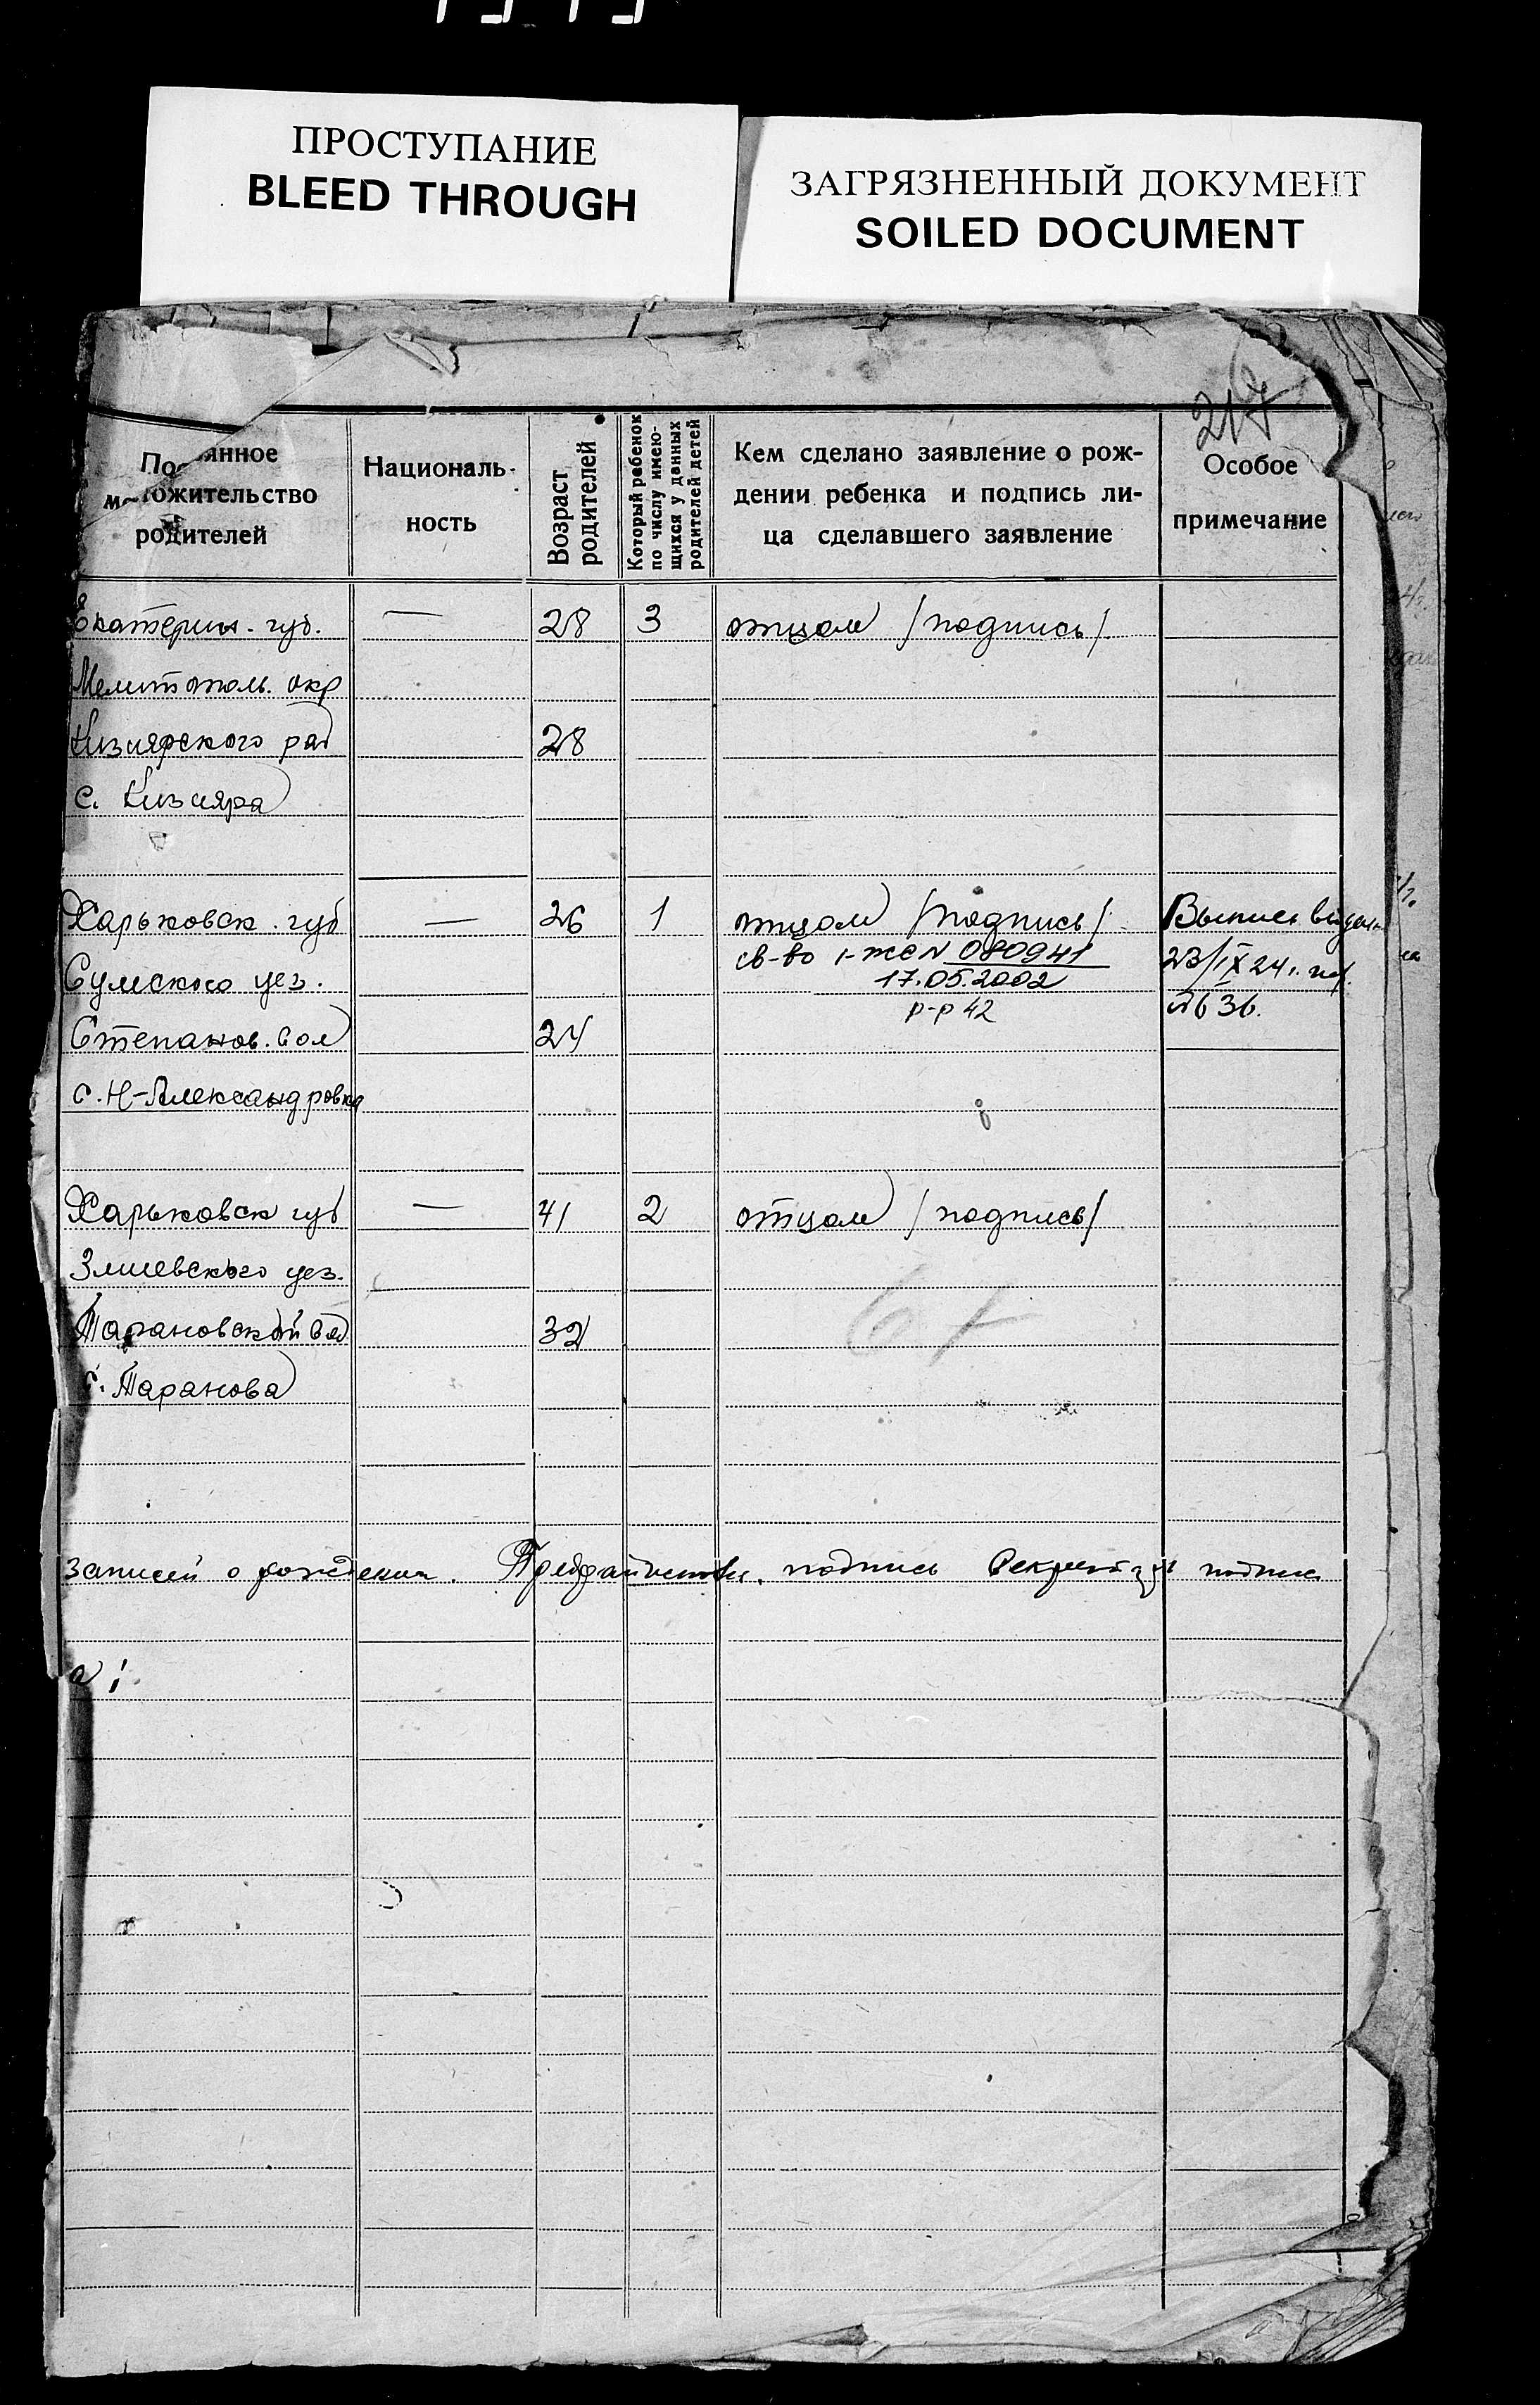 ПРОСТУПАНИЕ
BLEED THROUGH
ЗАГРЯЗНЕННЫЙ ДОКУМЕНТ
SOILED DOCUMENT
217
янное
ожительство
родителей
Националь-
ность
Возраст
родителей
Который ребенок
по числу имею-
щихся у данных
родителей детей
Кем сделано заявление о рож-
дении ребенка и подпись ли-
ца сделавшего заявление
Особое
примечание
Екатерин. губ. — 28 3 отцом /подпись/
Мелитополь. окр
Кизиярского рай 28
с. Кизияра
Харьковск. губ — 26 1 отцом /подпись/ Выпись выдан
св-во I-ЖС N 080941 23/IX 24 г.
Сумского уез. 17.05.2002
р-р 42 №36.
Степанов. вол 24
с. Н-Александровка
Харьковск губ — 41 2 отцом /подпись/
Змиевского уез.
Тарановской вол 32
с. Таранова
67
записей о рождении. подпись Секретарь подпись